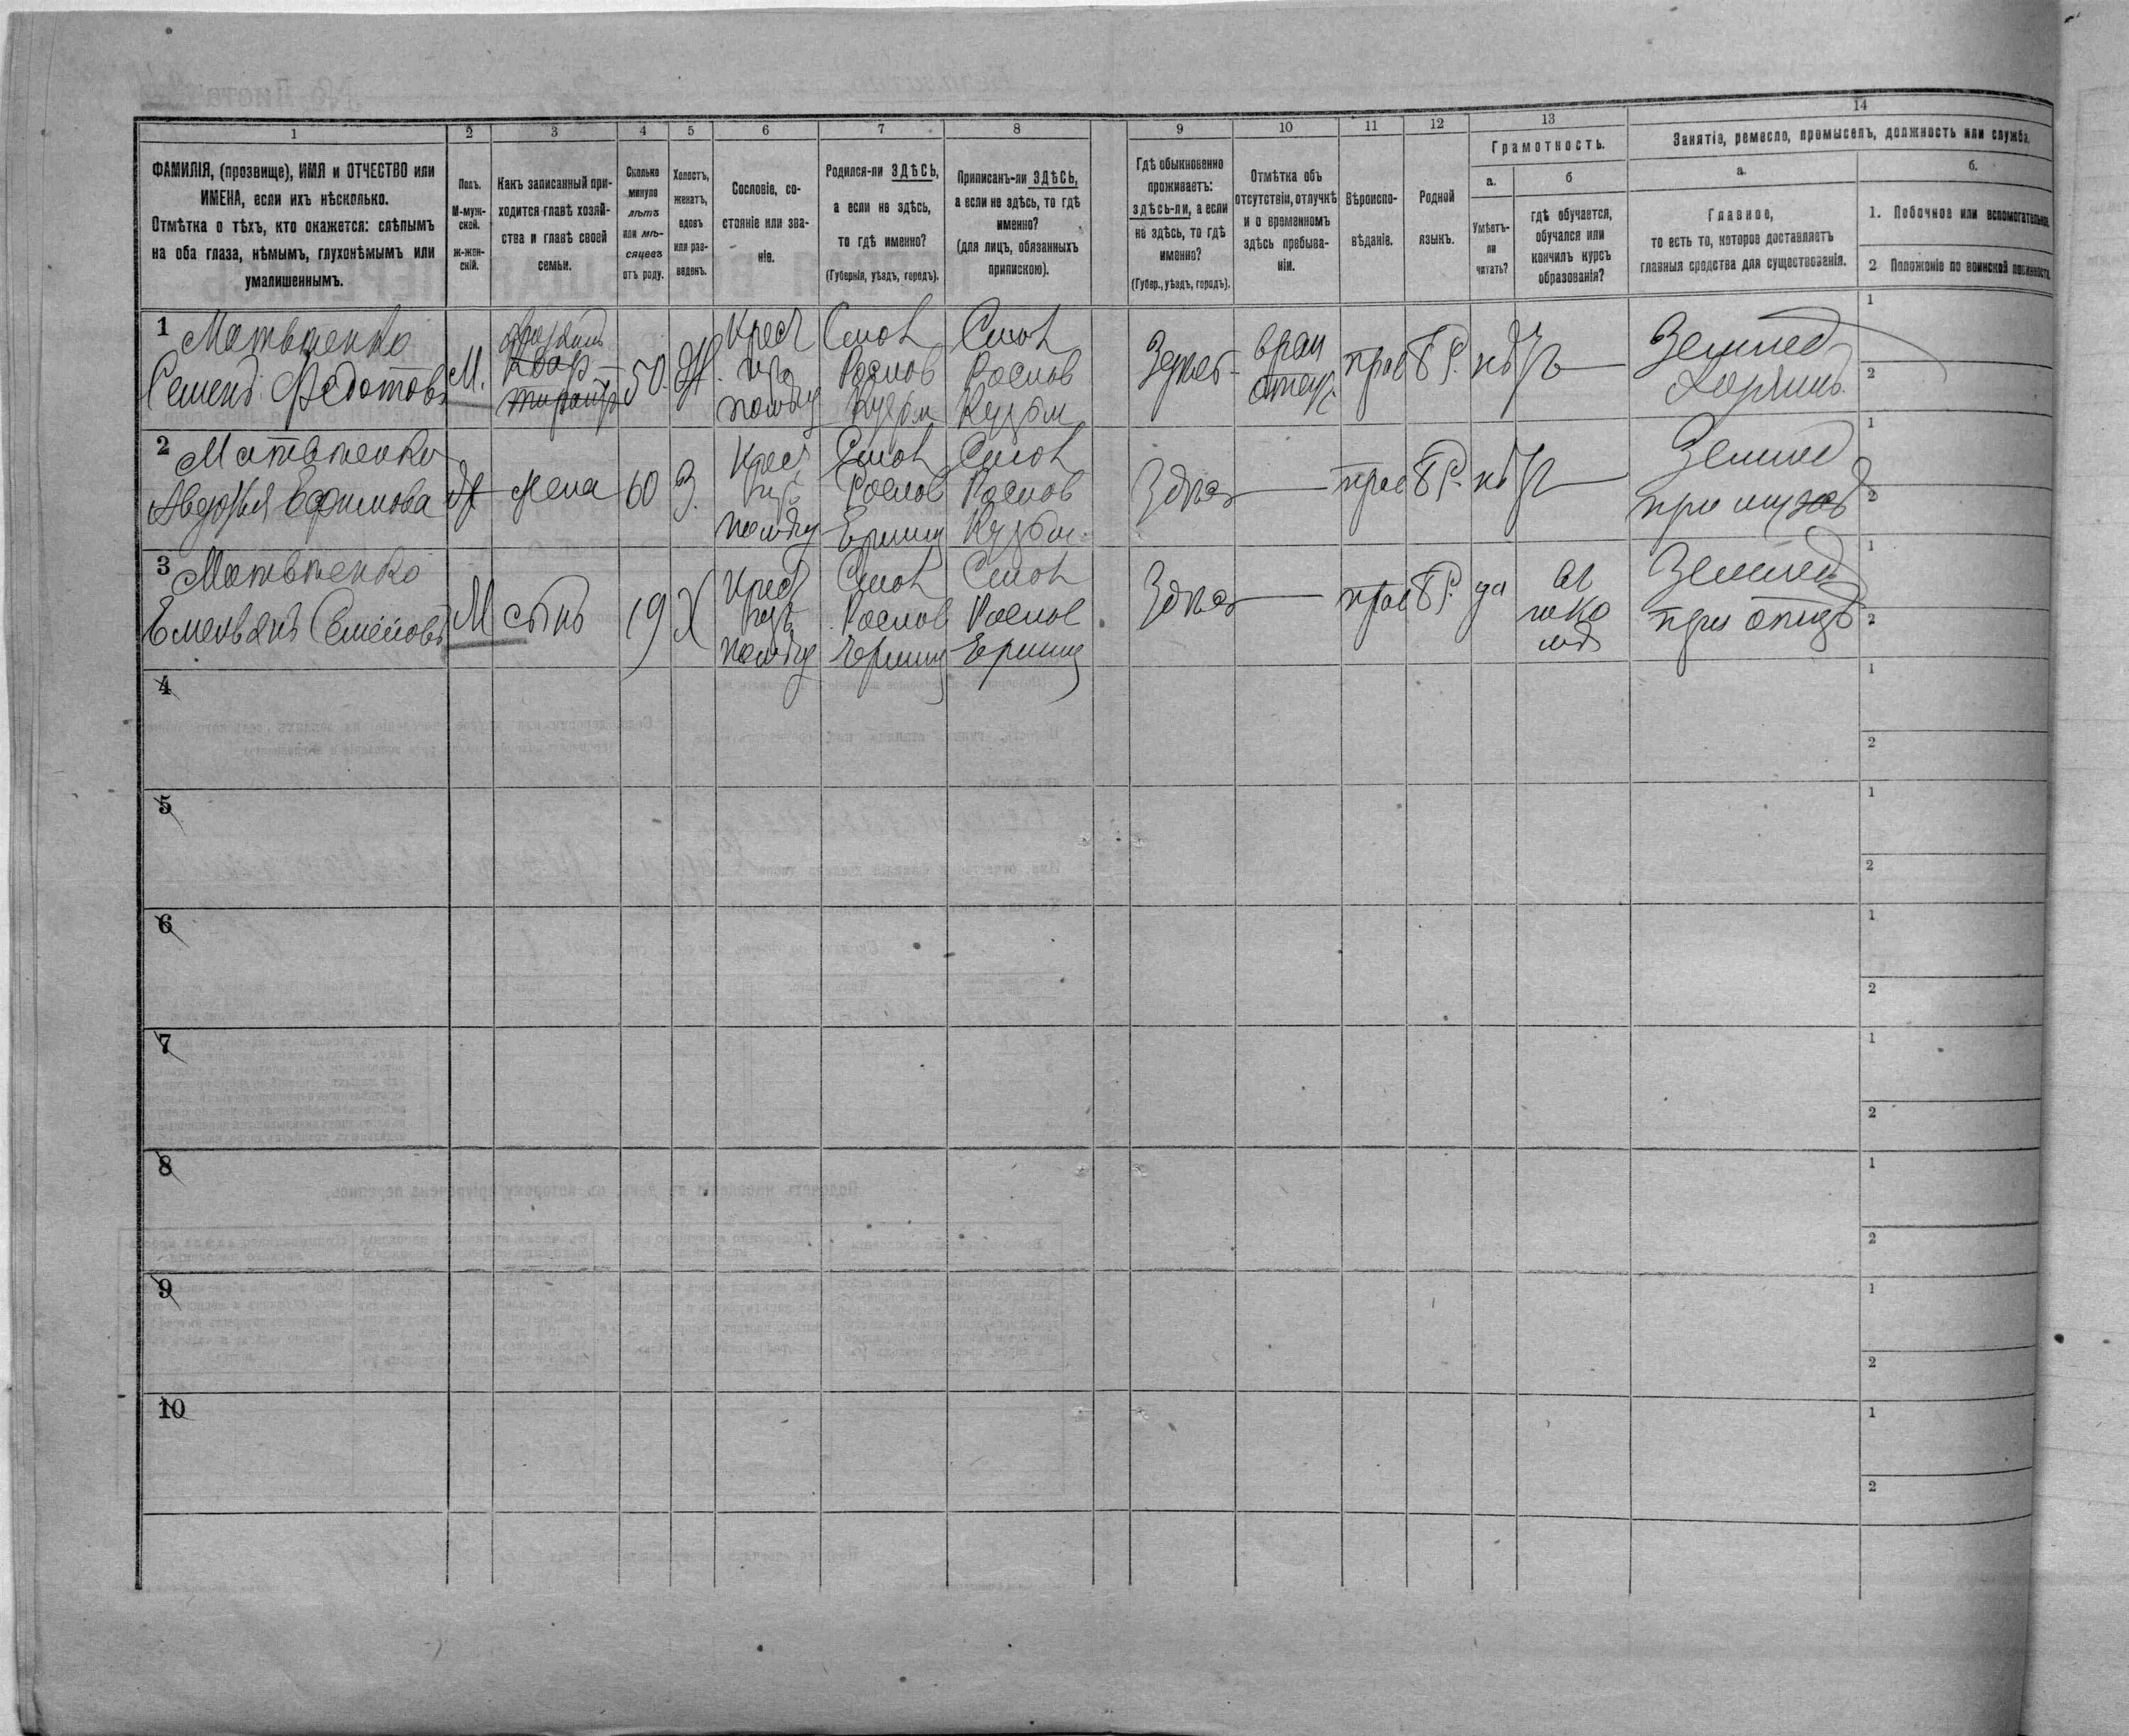 14
1 2 3 4 5 6 7 8 9 10 11 12 13
ФАМИЛІЯ, (прозвище), ИМЯ и ОТЧЕСТВО или
ИМЕНА, если ихъ нѣсколько.
Отмѣтка о тѣхъ, кто окажется: слѣпымъ
на оба глаза, нѣмымъ, глухонѣмымъ или
умалишеннымъ.
Полъ.
М-муж-
ской.
Ж-жен-
скій.
Какъ записанный при-
ходится главѣ хозяй-
ства и главѣ своей
семьи.
Сколько
минуло
лѣтъ
или мѣ-
сяцевъ
отъ роду.
Холостъ,
женатъ,
вдовъ
или раз-
веденъ.
Сословіе, со-
стояніе или зва-
ніе.
Родился-ли ЗДѢСЬ,
а если не здѣсь,
то гдѣ именно?
(Губернія, уѣздъ, городъ).
Приписанъ-ли ЗДѢСЬ,
а если не здѣсь, то гдѣ
именно?
(для лицъ, обязанныхъ
припискою).
Гдѣ обыкновенно
проживаетъ:
здѣсь-ли, а если
не здѣсь, то гдѣ
именно?
(Губер., уѣздъ, городъ).
Отмѣтка объ
отсутствіи, отлучкѣ
и о временномъ
здѣсь пребыва-
ніи.
Вѣроиспо-
вѣданіе.
Родной
языкъ.
Грамотность.
а.
Умѣетъ-
ли
читать?
б
гдѣ обучается,
обучался или
кончилъ курсъ
образованія?
Занятіе, ремесло, промыселъ, должность или служба.
а.
Главное,
то есть то, которое доставляетъ
главныя средства для существованія.
б.
1. Побочное или вспомогательное.
2 Положеніе по воинской повинности.
1 Матвѣенко
Семенъ Федотовъ
М.
Квар
50.
Ж.
Крест
Смол
Рослов
Смол
Рослов
Здѣсь
прав
БР.
нѣтъ
Землед
1
2
2 Матвѣенко
Авдотья Ефимова
Ж
жена
60
З.
Крест
Смол
Рослов
Ершич
Смол
Рослов
Здѣсь
прав
БР.
нѣтъ
Землед
при мужѣ
1
2
3 Матвѣенко
Емельянъ Семеновъ
М
сынъ
19
Х
Крест
Смол
Рослов
Ершич
Смол
Рослов
Ершич
Здѣсь
прав
БР.
да
въ
шко
лѣ
Землед
при отцѣ
1
2
4
1
2
5
1
2
6
1
2
7
1
2
8
1
2
9
1
2
10
1
2